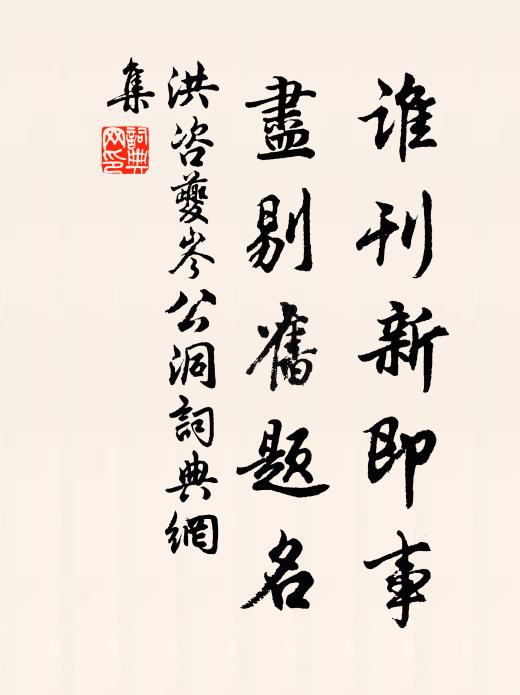 誰刊新即事
盡剔舊題名
洪咨夔岑公洞詞典網
集
詞典
网印